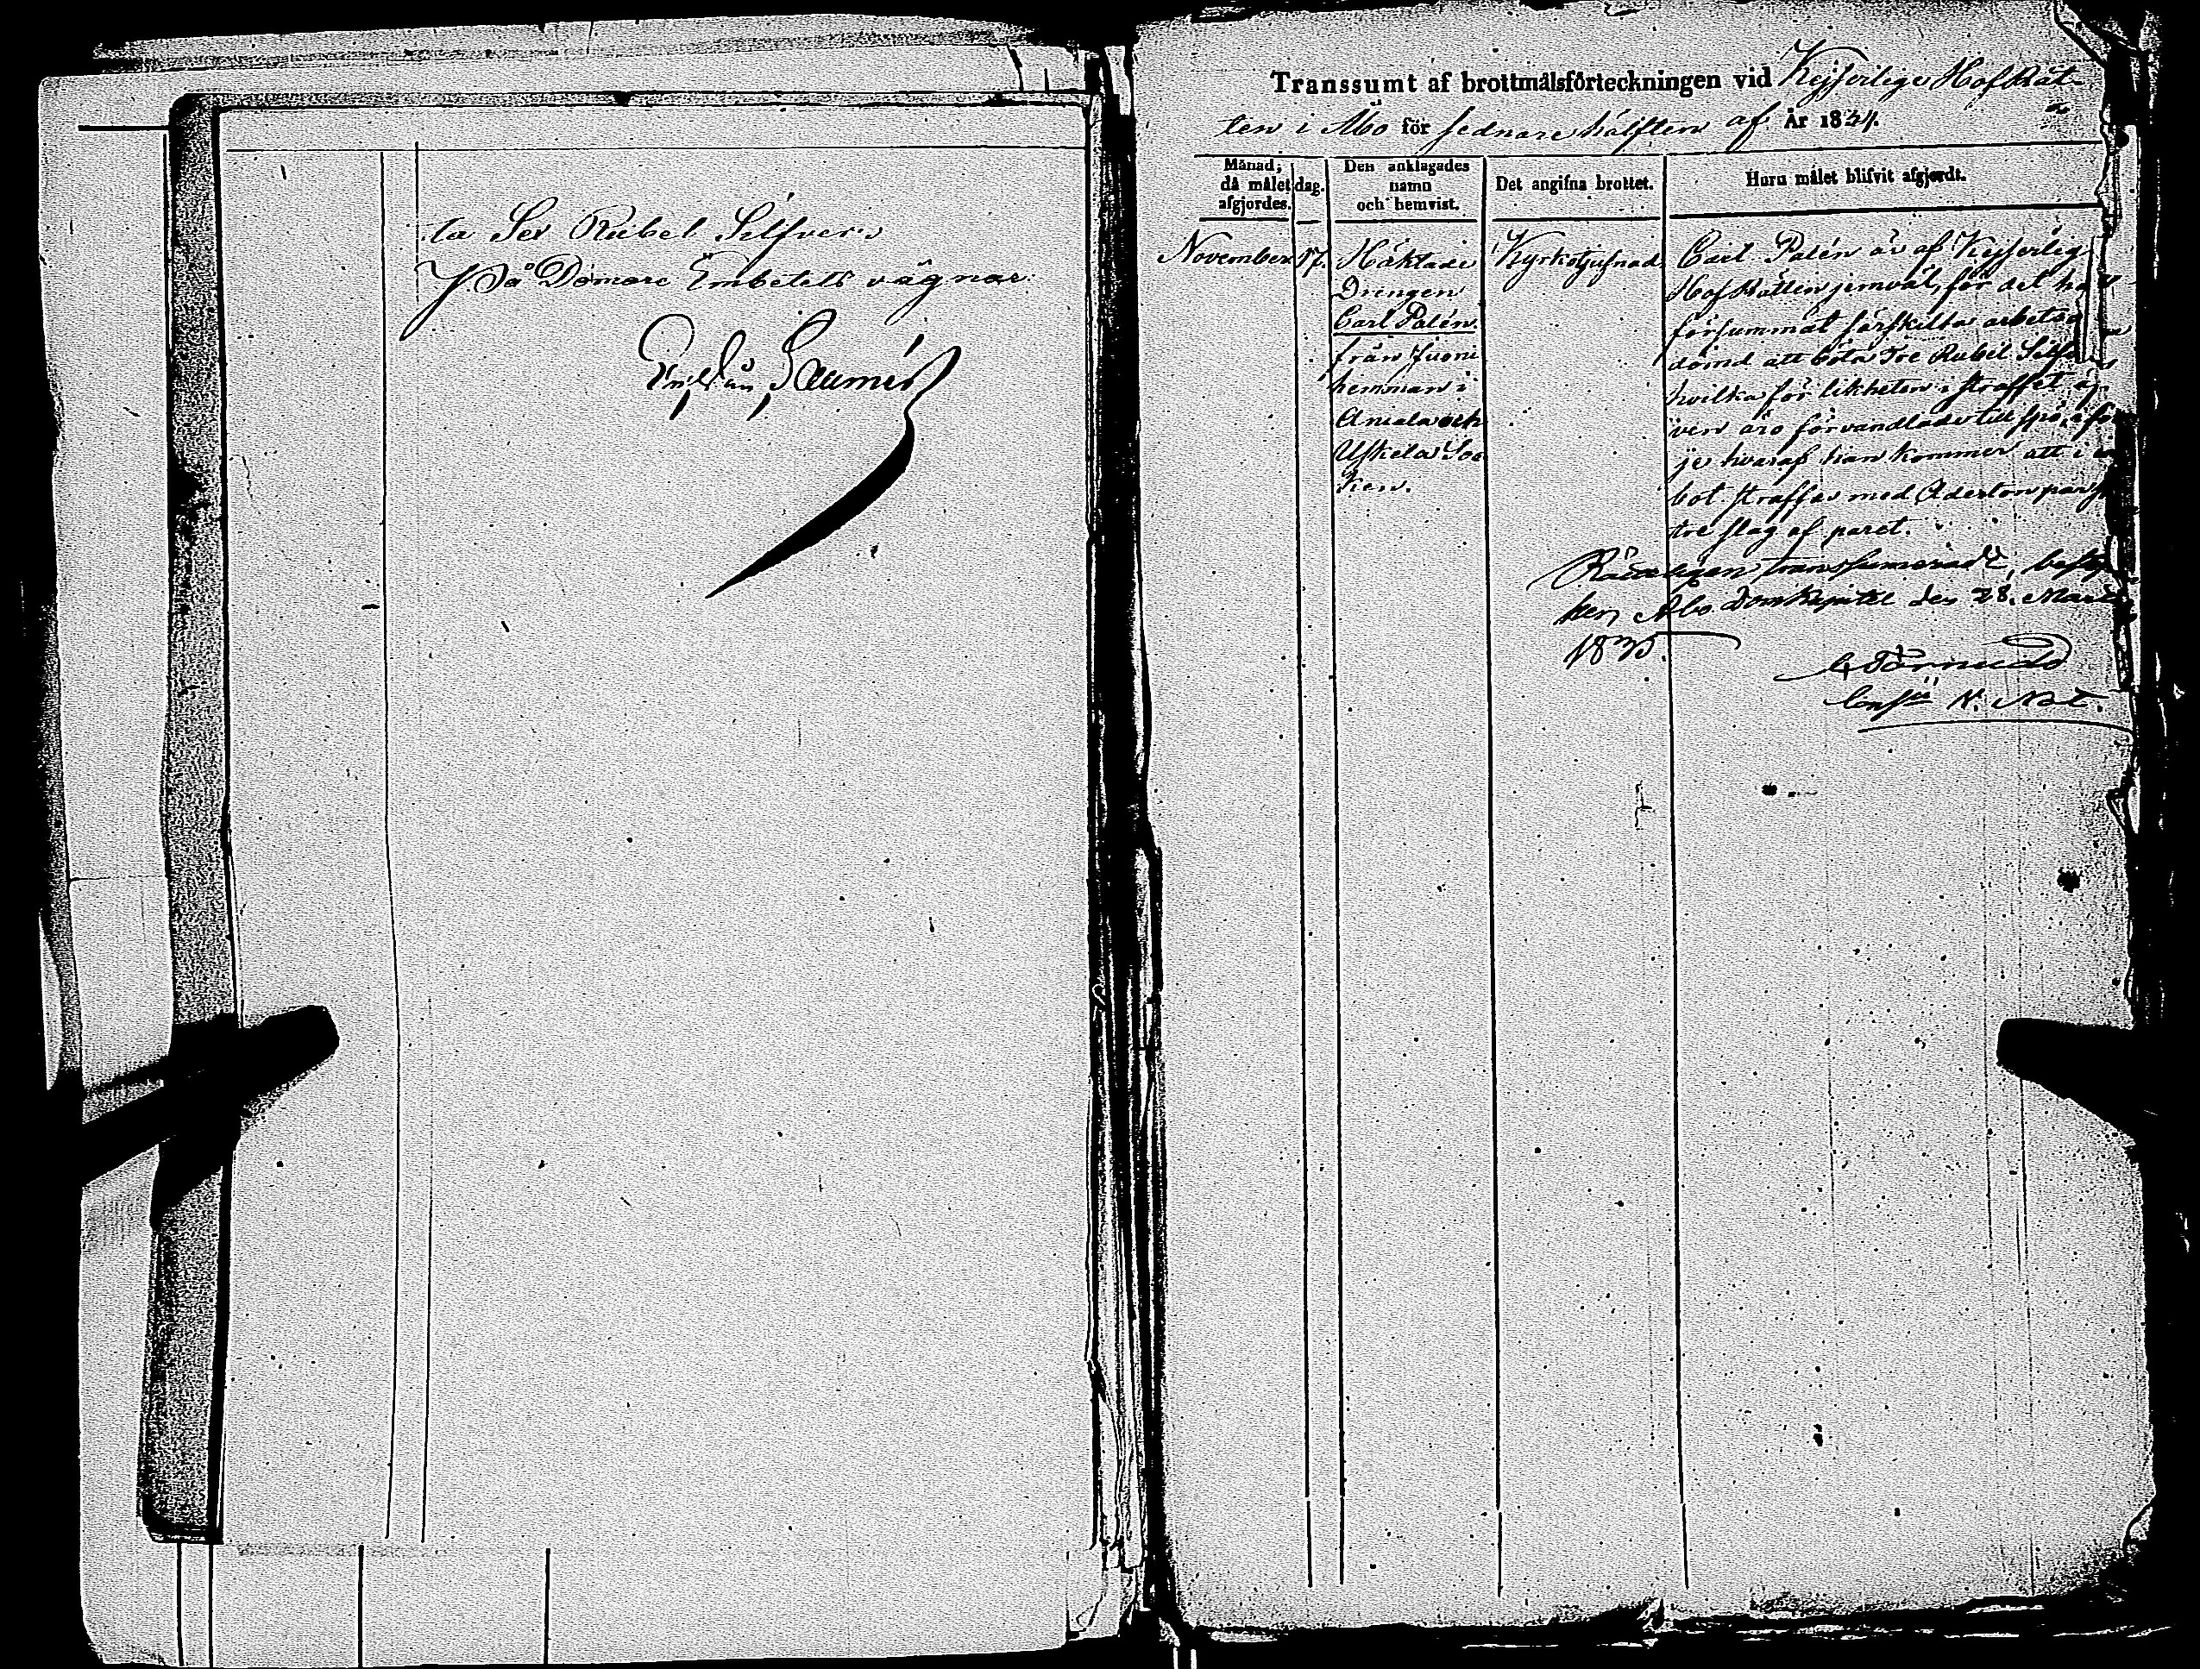 ta Sex Rubel Silfver.
På Domare Embetets vägnar:
Transsumt af brottmålsförteckningen vid Kejserlige HofRät-
ten i Åbo för sednare hälften af År 1834.
Månad, då målet afgjordes.
dag.
Den anklagades namn och hemvist.
Det angifna brottet.
Huru målet blifvit afgjordt.
November
17.
Häktade
Drengen
Carl Palén.
från Juoni
hemman i
och
Uskela Soc
ken.
Kyrkotjufnad
Carl Palén är af Kejserlig
HofRätten jemväl, för det ha
försummat särskilta arbets
dömd att böta Tre Rubel Silf
hvilka för likheten i straffet äf
ven äro förvandlade till spö, e för
je hvaraf han kommer att i ett
bot straffas med Aderton par sp
tre slag af paret.
Rätteligen transsumeradt, bestyr
ker Åbo Domkapitel den 28. Mars
1835.
G Törnudd
Cons: N. Not.